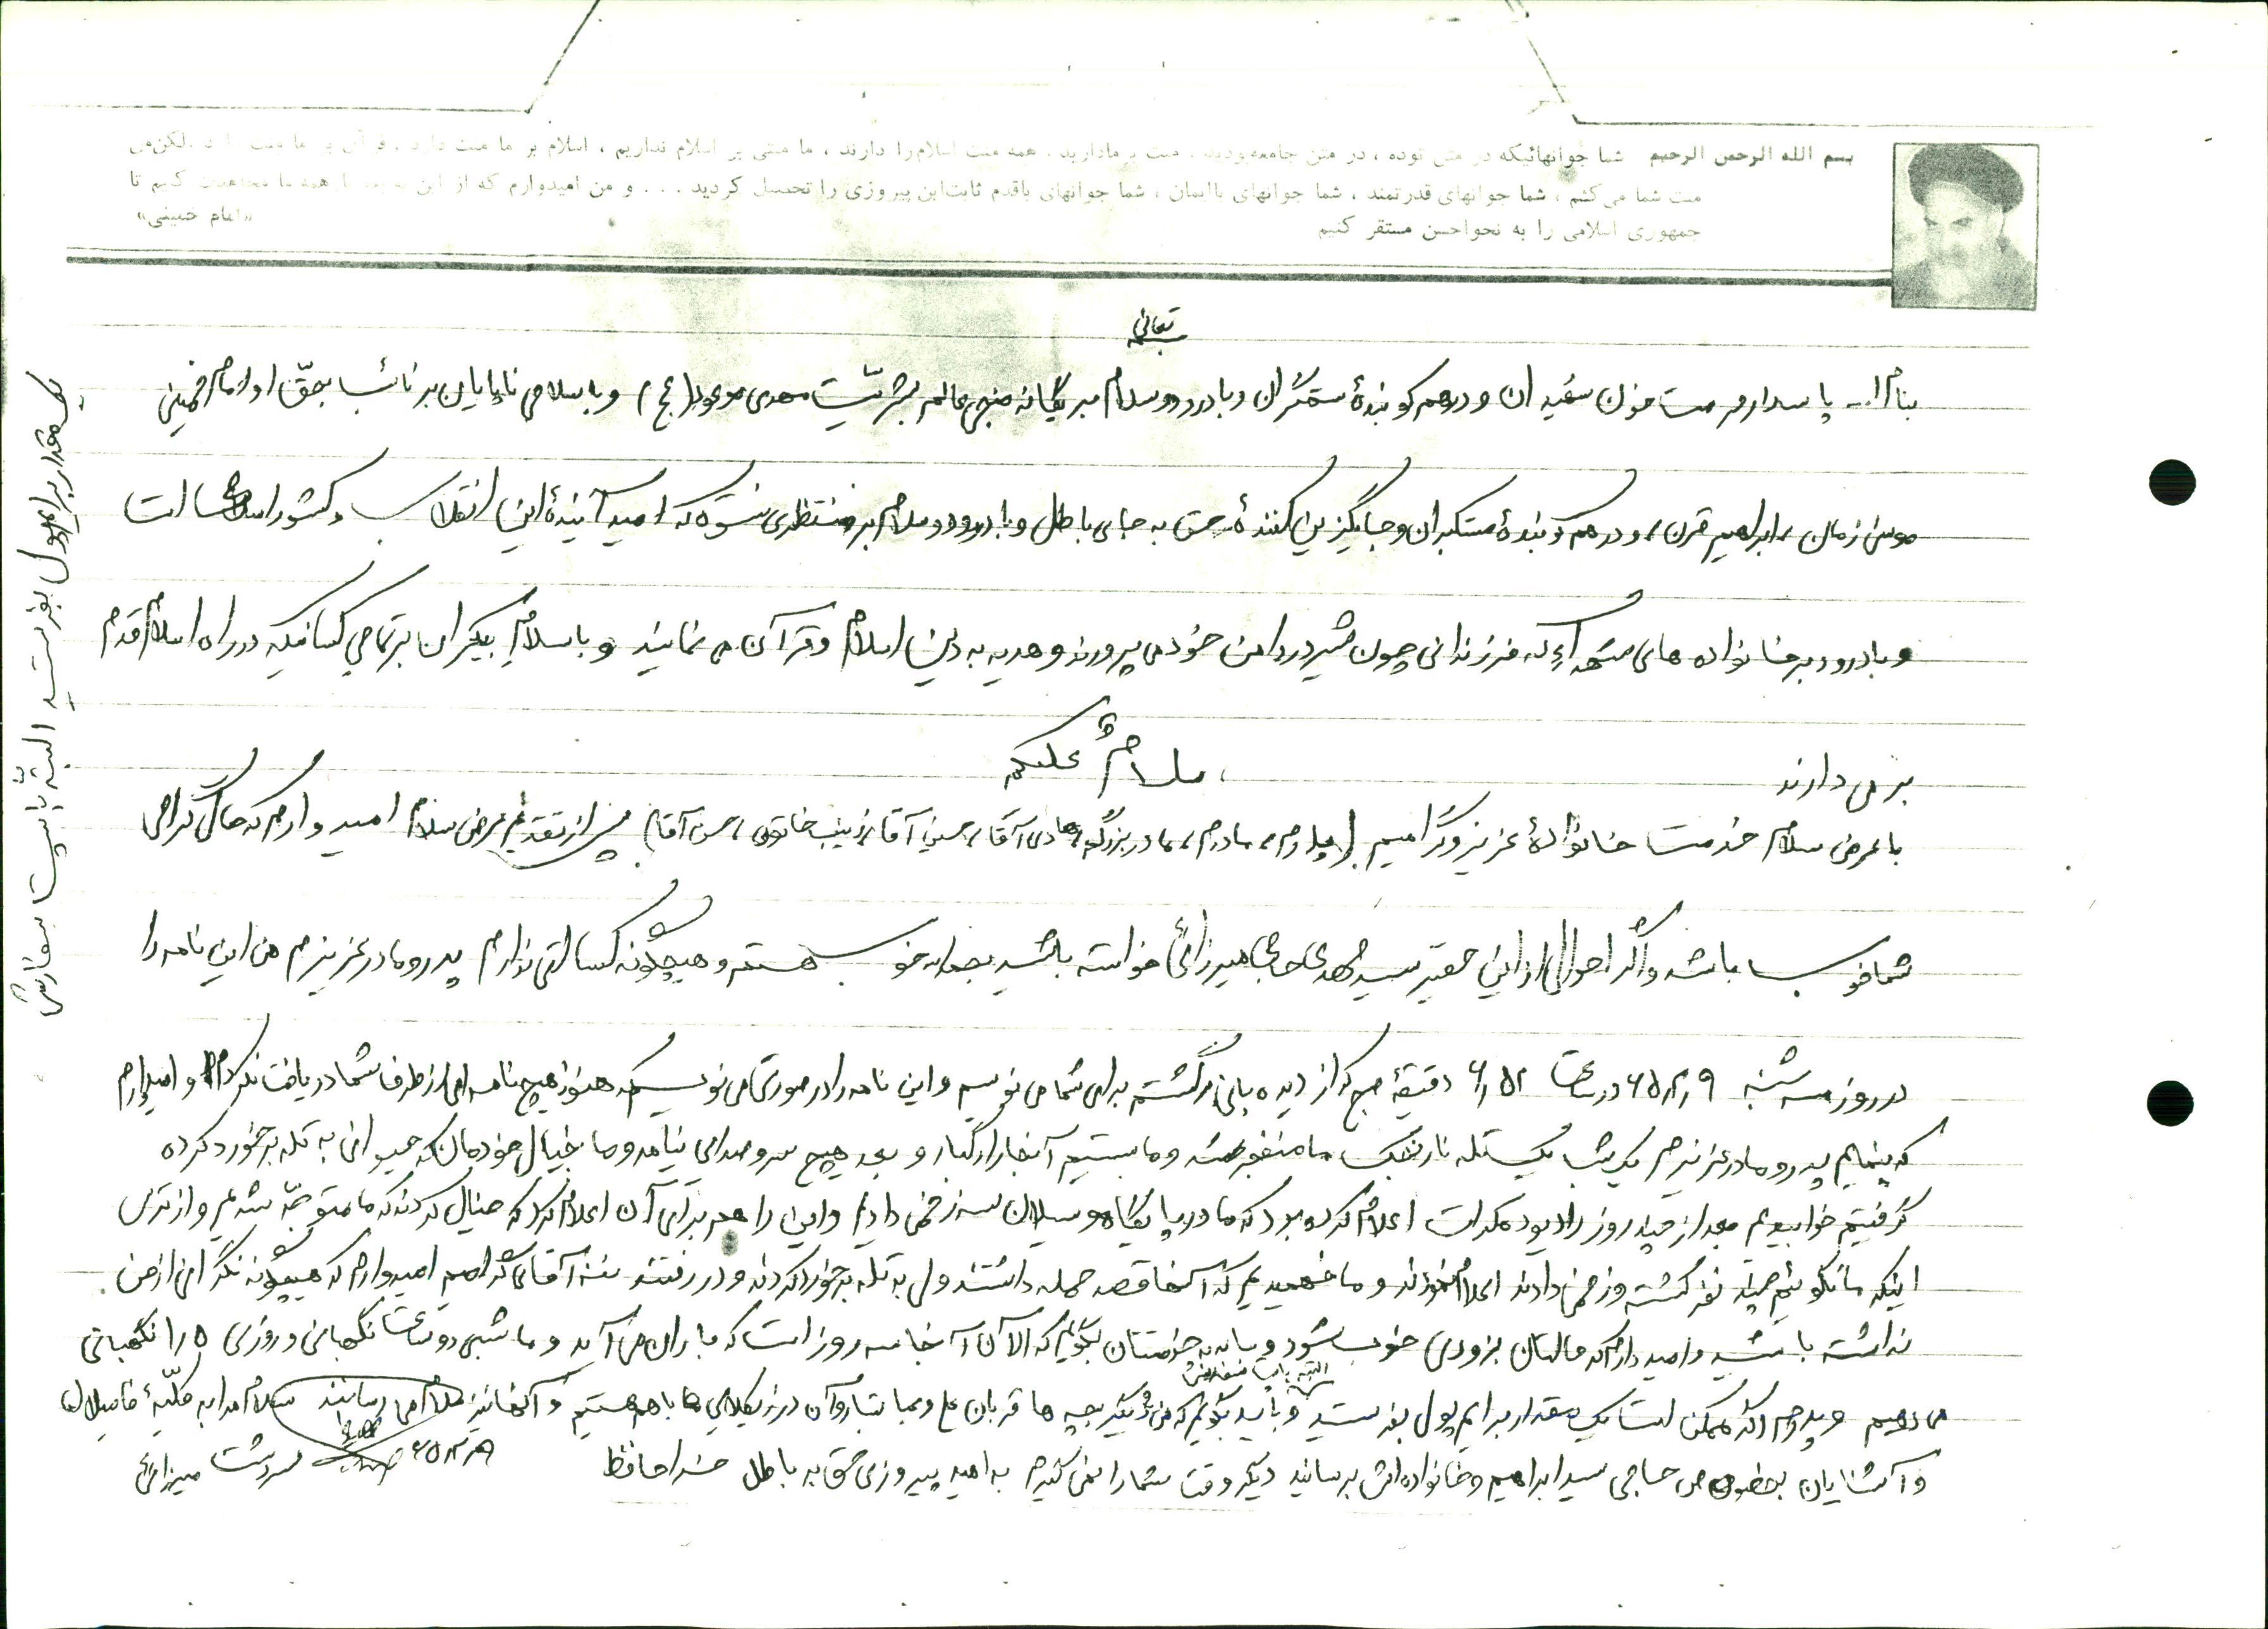 بسم الله الرحمن الرحیم شما جوانهائیکه در متن توده ، در متن جامعه بودید ، منت بر مادارید ، همه منت اسلام‌را دارند ، ما منتی بر اسلام نداریم ، اسلام بر ما منت دارد ، لکن‌من
منت شما می‌کشم ، شما جوانهای قدرتمند ، شما جوانهای باایمان ، شما جوانهای باقدم ثابت‌این پیروزی را تحصیل کردید . . . و من امیدوارم که از این همه ما مجاهدت کنیم تا
جمهوری اسلامی را به نحواحسن مستقر کنیم
«امام خمینی»
بسمه تعالی
بنام ا... پاسدار حرمت خون شهیدان و درهم کوبندهٔ ستمگران و با درود و سلام بر یگانه منجی عالم بشریّت مهدی موعود (عج) و با سلامی ناپایان بر نائب بحقّ او امام خمینی
موسی زمان، ابراهیم قرن، و درهم کوبندهٔ مستکبران و جایگزین کنندهٔ حق به جای باطل و با درود و سلام بر منتظری نستوه که امید آیندهٔ این انقلاب و کشور اسلامی است
و با درود بر خانواده های شهداء که فرزندانی چون شیر در دامن خود می پرورند و هدیه به دین اسلام و قرآن می نمایند و با سلام بیکران بر تمامی کسانیکه در راه اسلام قدم
بر می دارند
سلامٌ علیکم
با عرض سلام خدمت خانوادهٔ عزیز و گرامیم (پدرم، مادرم، مادربزرگم، هادی آقا، حسین آقا، زینب خاتون، حسن آقا) پس از تقدیم عرض سلام امیدوارم که حال گرامی
شما خوب باشد و اگر احوالی از این حقیر سید مهدی حاجی میرزائی خواسته باشید بحمدا... خوب هستم و هیچگونه کسالتی ندارم پدر و مادر عزیزم من این نامه را
در روز سه شنبه ۶۵٫۲٫۹ در ساعت ۶٫۵۲ دقیقهٔ صبح که از دیده بانی برگشتم برای شما می نویسم و این نامه را در صورتی می نویسم که هنوز هیچ نامه ای از طرف شما دریافت نکرده‌ام و امیدوارم
که پدر و مادر عزیزم یک شب یک تله نارنجک ما منفجر شد و ما بستیم آنجا را رگبار و بعد هیچ سر و صدایی نیامد و ما بخیال خودمان که حیوانی به تله برخورد کرده
گرفتیم خوابیدیم بعد از چند روز رادیو دمکرات اعلام کرده بود که ما در پایگاه سیلان سه زخمی دادیم و این را هم برای آن اعلام کرد که خیال کردند که ما متوجّه شدیم و از ترس
اینکه ما نگوئیم چند نفر کشته و زخمی دادند اعلام نمودند و ما فهمیدیم که آنها قصد حمله داشتند ولی به تله برخورد کردند و در رفتند آقای گرامیم امیدوارم که هیچگونه نگرانی از من
نداشته باشید و امیدوارم که حالتان بزودی خوب شود و باید به خدمتتان بگویم که الآن آنجا سه روز است که باران می آید و ما شبی دو ساعت نگهبانی و روزی ۱٫۵ نگهبانی
می دهیم و پدرم اگر ممکن است یک مقدار برایم پول بفرستید و باید بگویم که من و دیگر بچه ها قربان علی و در نزدیکی ها با هم هستیم و آنها نیز سلام می رسانند سلام مرا به کلّیهٔ فامیلان
البته با پست سفارشی
و آشنایان بخصوص حاجی سید ابراهیم و خانواده اش برسانید دیگر وقت شما را نمی گیرم به امید پیروزی حق بر باطل خداحافظ ۶۵٫۲٫۹ سردشت میرزائی
یک مقدار برایم پول بفرستید البتّه با پست سفارشی